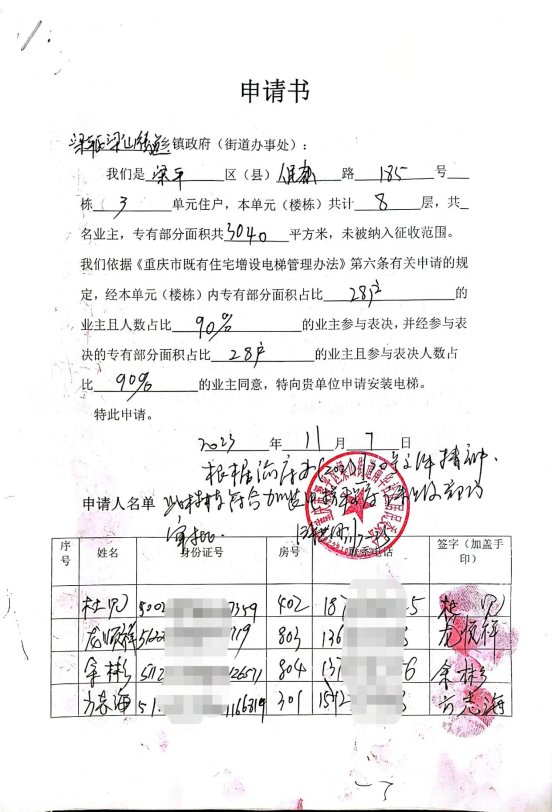 申请书
梁平区梁山街道乡镇政府（街道办事处）：
我们是 梁平 区（县） 路 185 号
栋 3 单元住户，本单元（楼栋）共计 8 层，共
名业主，专有部分面积共 3040 平方米，未被纳入征收范围。
我们依据《重庆市既有住宅增设电梯管理办法》第六条有关申请的规
定，经本单元（楼栋）内专有部分面积占比 28户 的
业主且人数占比 90% 的业主参与表决，并经参与表
决的专有部分面积占比 28户 的业主且参与表决人数占
比 90% 的业主同意，特向贵单位申请安装电梯。
特此申请。
2023 年 11 月 7 日
根据渝府办 文件精神.
申请人名单 符合加装电梯程序
审批.
序号 姓名 身份证号 房号 联系电话 签字（加盖手印）
杜 500 7359 402 187 5 杜
龙顺祥 719 803 136 龙顺祥
余彬 512 26571 804 137 6 余彬
方志海 51. 1166319 301 1592 方志海